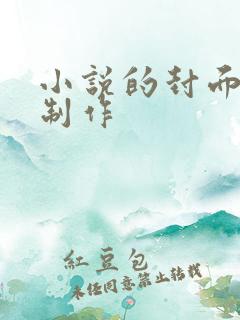 小說的封面
制作
紅豆包
未經同意禁止轉載